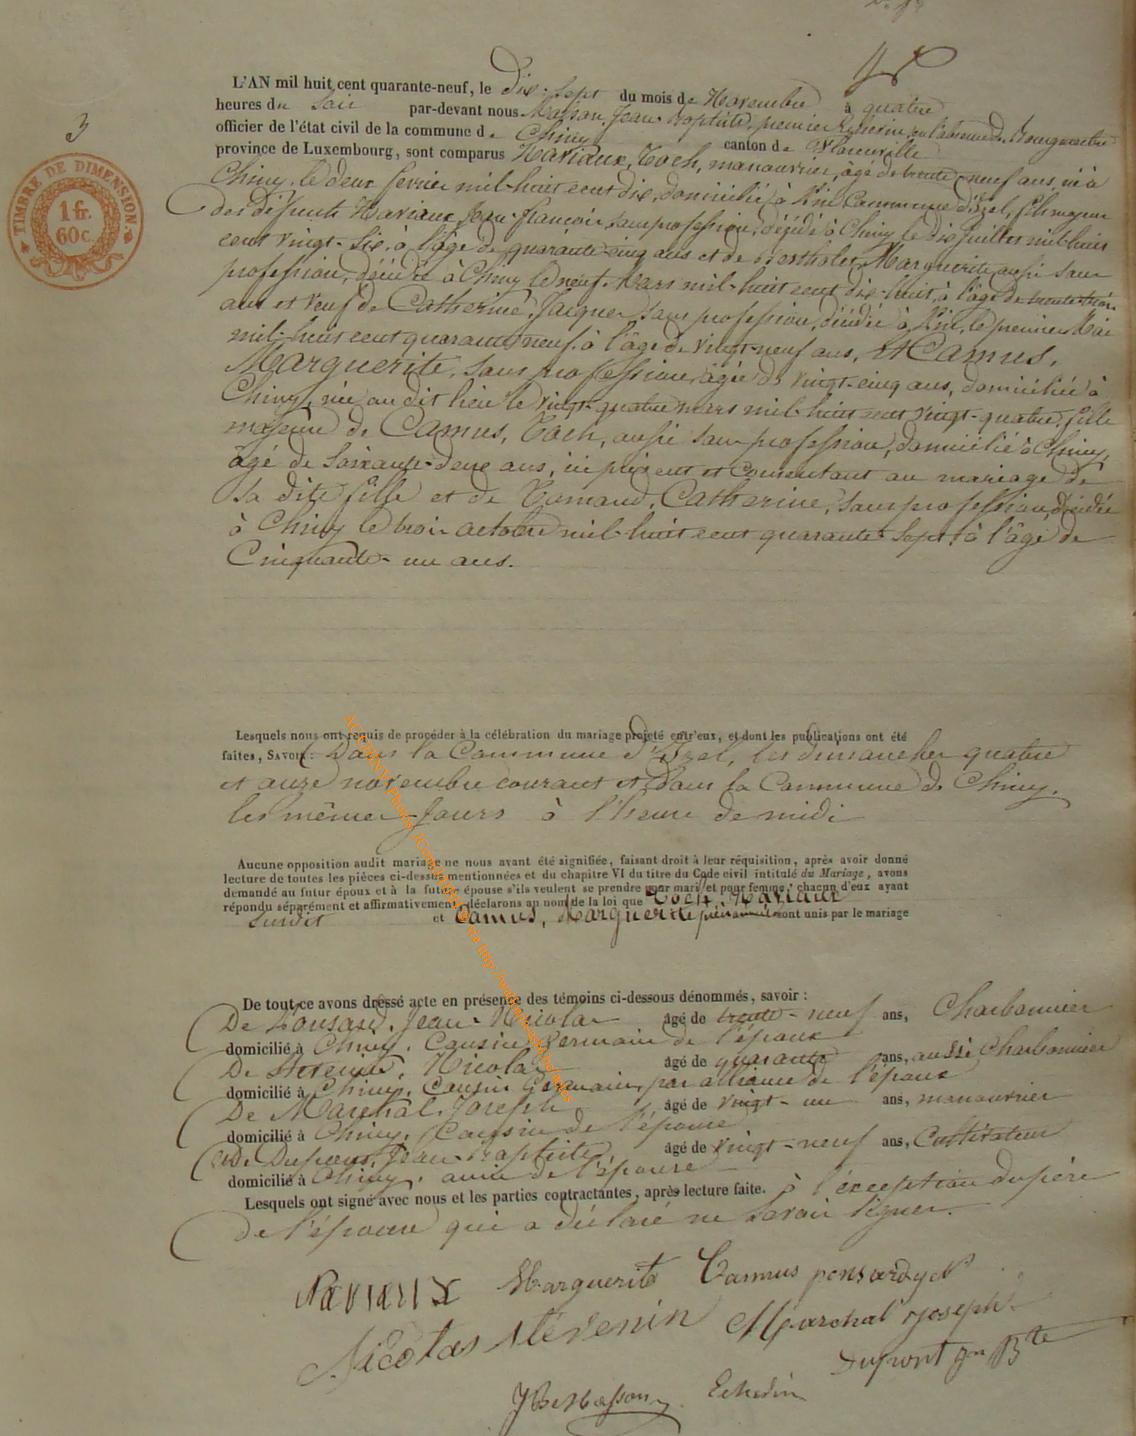 3
TIMBRE DE DIMENSION.
1 fr.
60 c.
L'AN mil huit cent quarante-neuf, le dix-sept du mois de Novembre à quatre
heures du Soir par-devant nous Masson, Jean-Baptiste, premier Echevin, en l'absence du Bourguemestre
officier de l'état civil de la commune de Chiny canton de Florenville
province de Luxembourg, sont comparus Naviaux, Toch, manouvrier, âgé de trente-neuf ans, né à
Chiny, le deux février mil-huit cent dix, domicilié à Commune d'Izel, fils majeur
des défunts Naviaux, Jean-françois, sans profession, décédé à Chiny le dix juillet mil-huit
cent vingt-six, à l'âge de quarante-cinq ans et de Marguerite, aussi sans
profession, décédée à Chiny le neuf Mars mil-huit cent dix-huit, à l'âge de trente-trois
ans et veuf de Catherine, Jacques, sans profession, décédée à le premier Mai
mil-huit cent quarante-neuf, à l'âge de vingt-neuf ans, Et Camus,
Marguerite, sans profession, âgée de vingt-cinq ans, domiciliée à
Chiny, née au dit lieu le vingt-quatre mars mil-huit cent vingt-quatre, fille
majeure de Camus, Toch, aussi sans profession, domicilié à Chiny,
âgé de soixante-deux ans, ici présent et consentant au mariage de
sa dite fille et de Catherine, sans profession, décédée
à Chiny le trois octobre mil-huit cent quarante-sept, à l'âge de
Cinquante-un ans.
Lesquels nous ont requis de procéder à la célébration du mariage projeté entr'eux, et dont les publications ont été
faites, SAVOIR: Dans la Commune d'Izel, les dimanches quatre
et onze novembre courant et dans la Commune de Chiny,
les mêmes Jours à l'heure de midi
Aucune opposition audit mariage ne nous ayant été signifiée, faisant droit à leur réquisition, après avoir donné
lecture de toutes les pièces ci-dessus mentionnées et du chapitre VI du titre du Code civil intitulé du Mariage, avons
demandé au futur époux et à la future épouse s'ils veulent se prendre pour mari et pour femme; chacun d'eux ayant
répondu séparément et affirmativement, déclarons au nom de la loi que Toch, Naviaux
Susdit et Camus, Marguerite prénommée sont unis par le mariage
De tout ce avons dressé acte en présence des témoins ci-dessous dénommés, savoir :
De Ponsard, Jean-Nicolas âgé de trente-neuf ans, Charbonnier
domicilié à Chiny, Cousin Germain de l'époux
De Stevenin, Nicolas âgé de quarante ans, aussi Charbonnier
domicilié à Chiny, Cousin Germain, par alliance de l'époux
De Maréchal, Joseph âgé de vingt-un ans, manouvrier
domicilié à Chiny, Cousin de l'épouse
De Dupont, Jean-Baptiste, âgé de vingt-neuf ans, Cultivateur
domicilié à Chiny, ami de l'épouse
Lesquels ont signé avec nous et les parties contractantes, après lecture faite. à l'exception du père
de l'épouse qui a déclaré ne savoir signer.
Naviaux Marguerite Camus ponsardjeN
Nicolas Stévenin Marchal Joseph
Dupont Jn Bte
JBte Masson Echevin